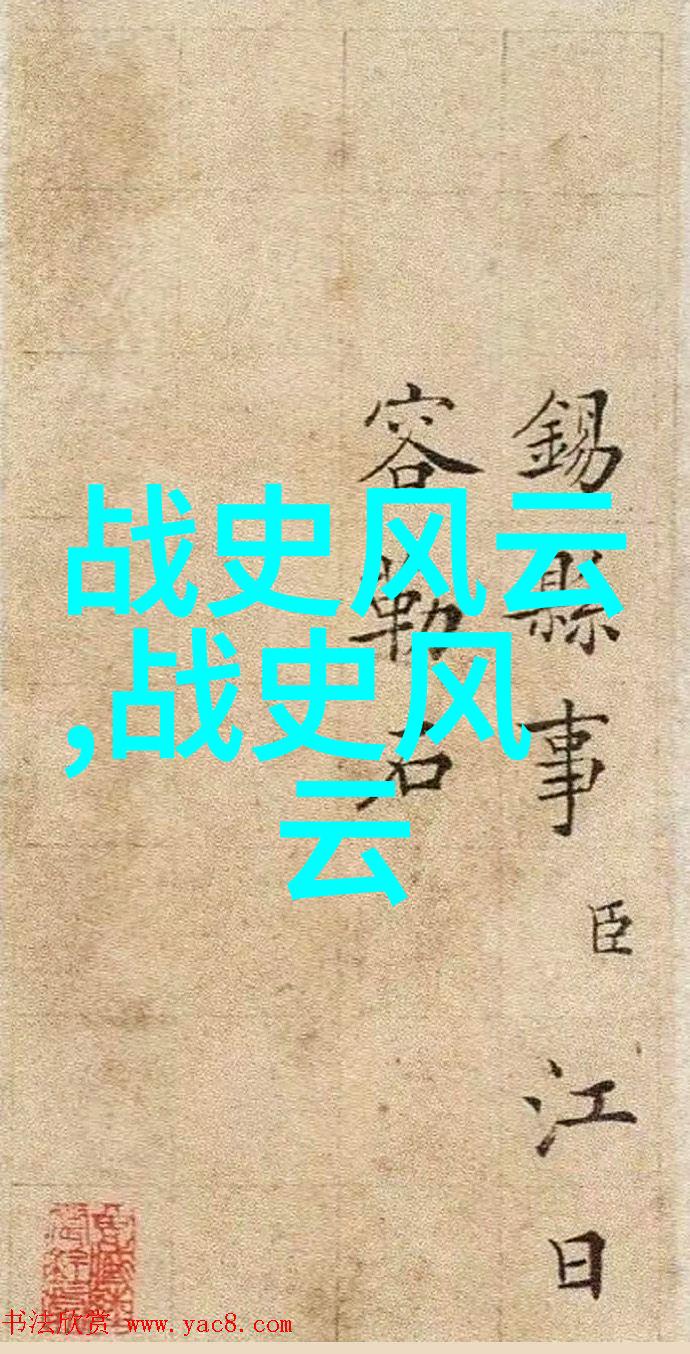 錫縣事臣江日
容勒石
战史风云
,战史风
云
书法欣赏 www.yac8.com